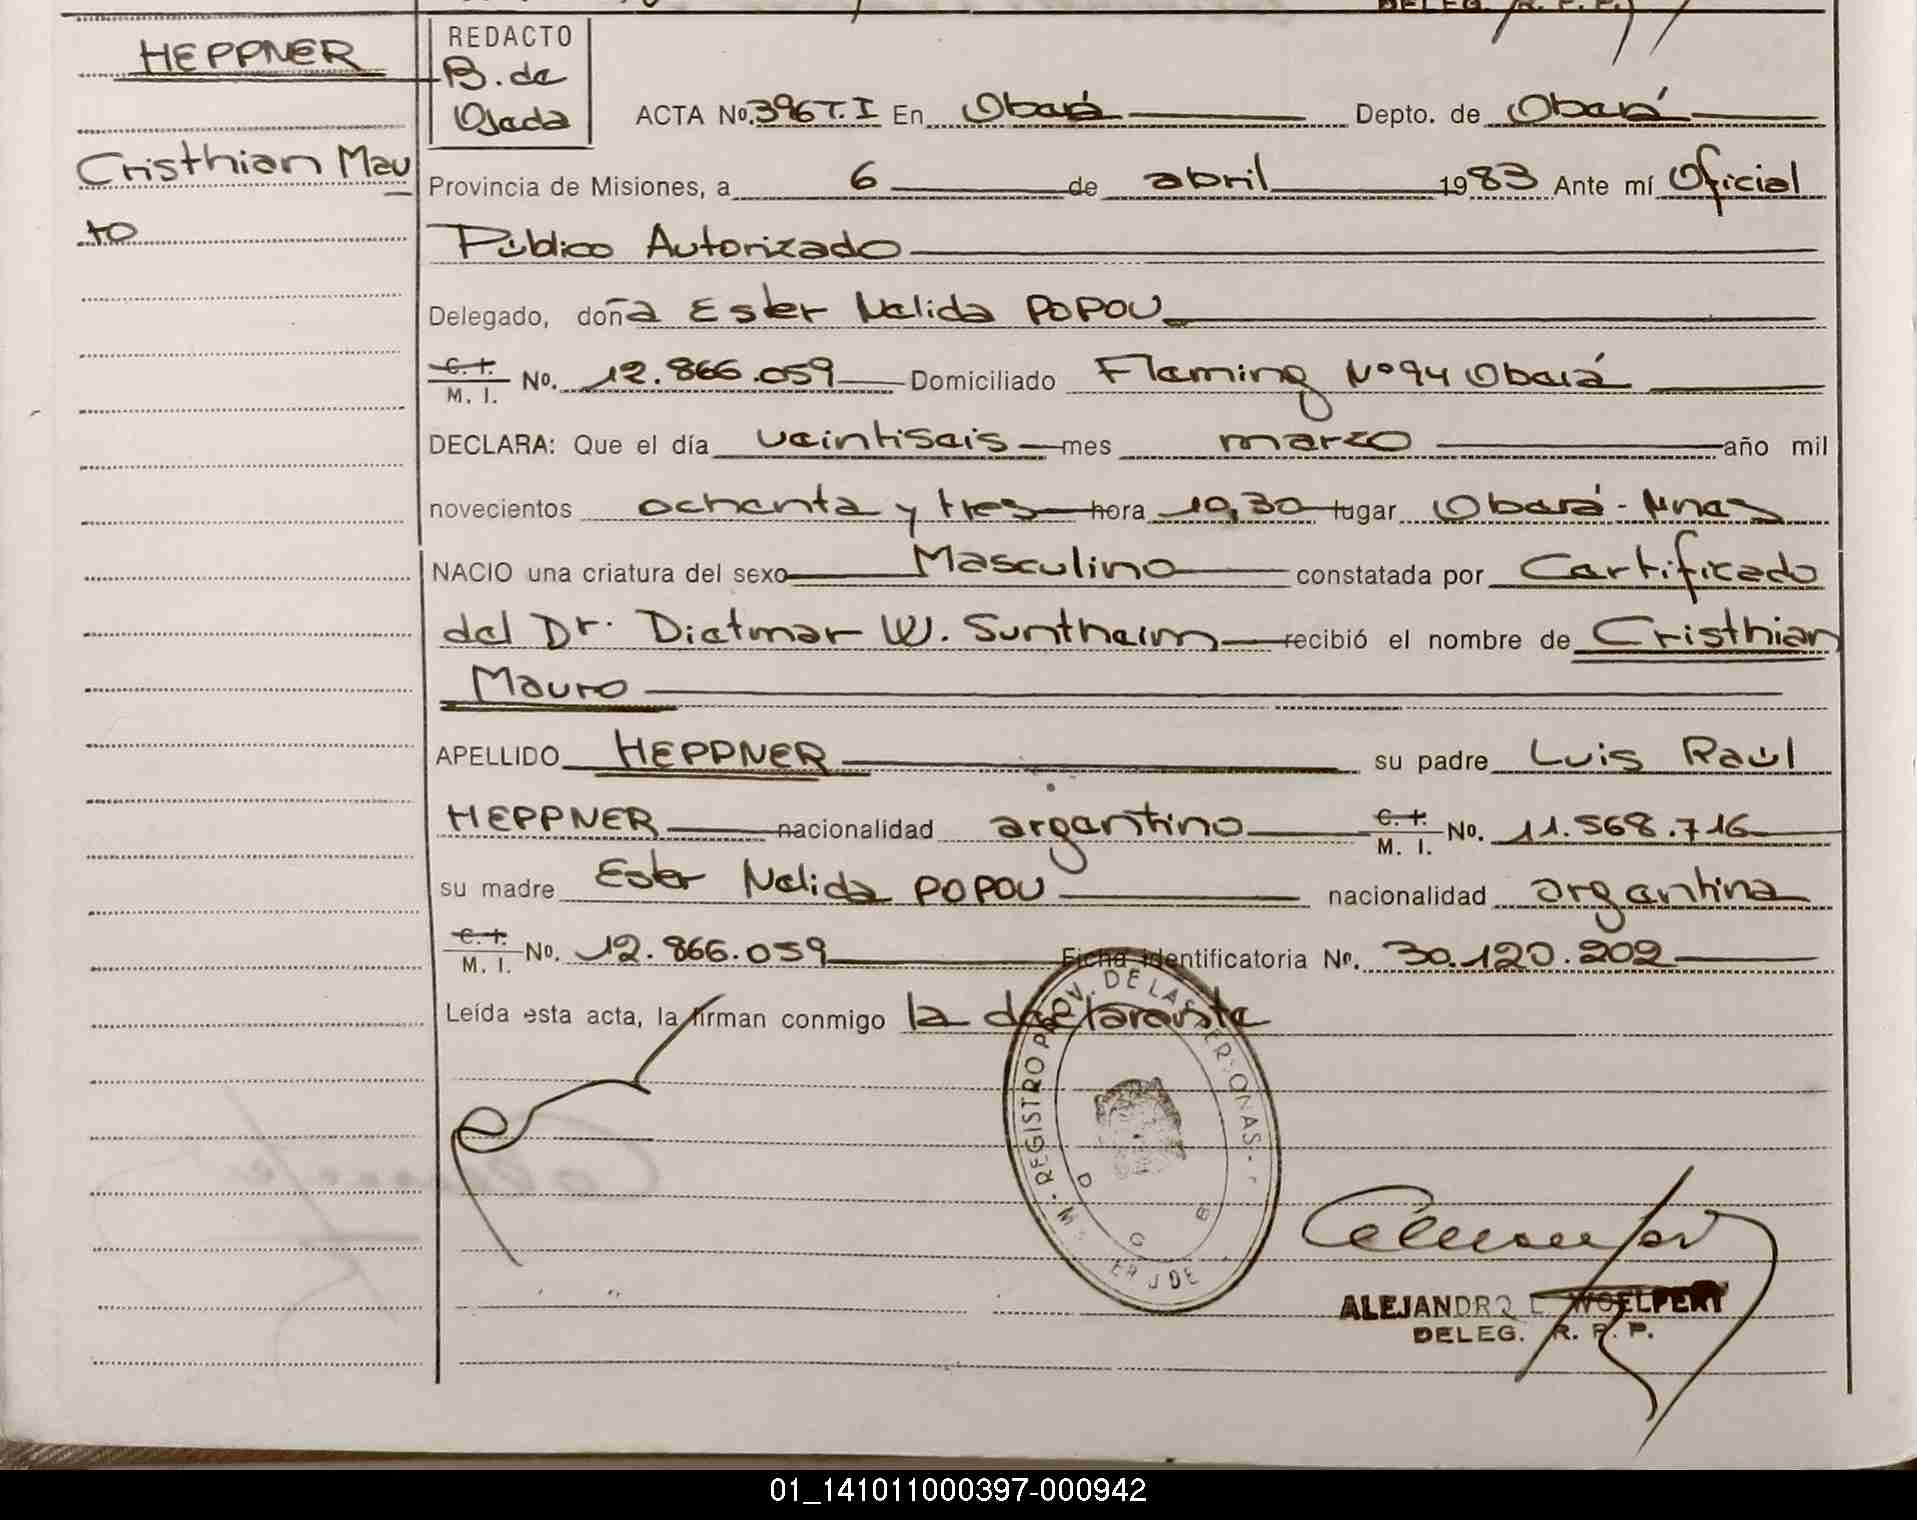 DELEG. R. P. P.
HEPPNER
Cristhian Mau
ro
REDACTO
B. de
Ojeda
ACTA No. 396 T. I En Oberá Depto. de Oberá
Provincia de Misiones, a 6 de abril 1983 Ante mí Oficial
Público Autorizado
Delegado, doña Ester Nelida POPOV
C. I. M. I. No. 12.866.059 Domiciliado Fleming Nº 94 Oberá
DECLARA: Que el día veintiseis mes marzo año mil
novecientos ochenta y tres hora 10,30 lugar Oberá - Mnes
NACIO una criatura del sexo Masculino constatada por Certificado
del Dr. Dietmar W. Suntheim recibió el nombre de Cristhian
Mauro
APELLIDO HEPPNER su padre Luis Raúl
HEPPNER nacionalidad argentino C. I. M. I. No. 11.568.716
su madre Ester Nelida POPOV nacionalidad argentina
C. I. M. I. No. 12.866.059 Ficha identificatoria Nº. 30.120.202
Leída esta acta, la firman conmigo la declarante
REGISTRO PROV. DE LAS PERSONAS
ALEJANDRO L. WOELPERT
DELEG. R. P. P.
01_141011000397-000942